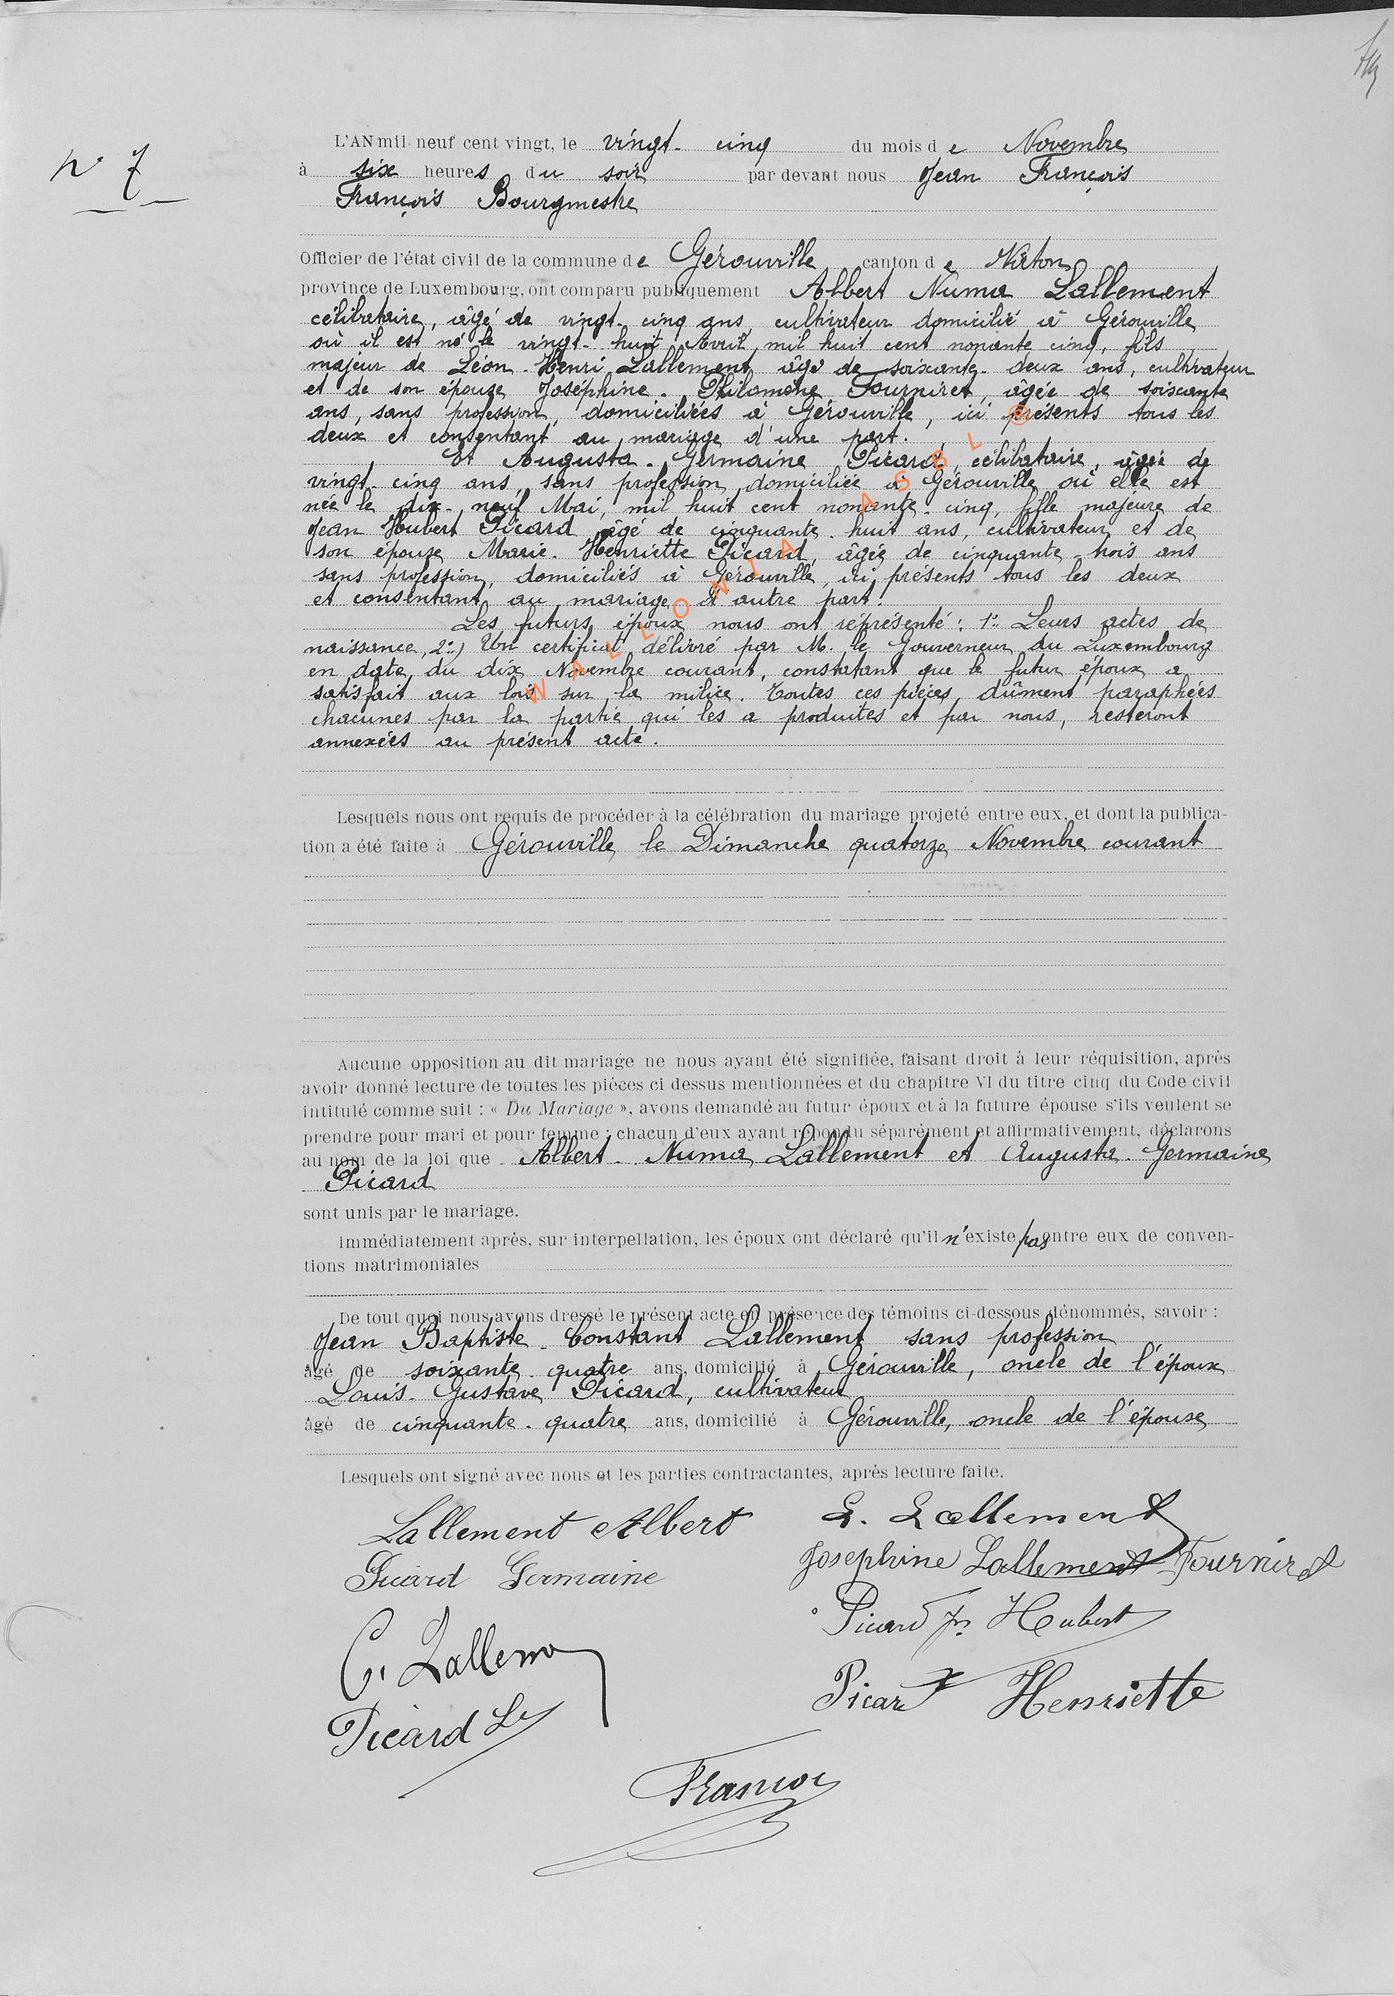 N° 7
L'AN mil neuf cent vingt, le vingt-cinq du mois de Novembre
à six heures du soir par devant nous Jean François
François Bourgmestre
Officier de l'état civil de la commune de Gérouville canton de Virton
province de Luxembourg, ont comparu publiquement Albert Numa Lallement
célibataire, âgé de vingt-cinq ans, cultivateur domicilié à Gérouville
où il est né le vingt-huit Avril mil huit cent nonante cinq, fils
majeur de Léon-Henri Lallement âgé de soixante-deux ans, cultivateur
et de son épouse Joséphine-Philomène Fourniret, âgée de soixante
ans, sans profession, domiciliées à Gérouville, ici présents tous les
deux et consentant au mariage d'une part.
Et Augusta-Germaine Picard, célibataire, âgée de
vingt-cinq ans, sans profession, domiciliée à Gérouville où elle est
née le dix-neuf Mai, mil huit cent nonante-cinq, fille majeure de
Jean Hubert Picard âgé de cinquante-huit ans, cultivateur et de
son épouse Marie-Henriette Picard, âgée de cinquante-trois ans
sans profession, domiciliés à Gérouville, ici présents tous les deux
et consentant au mariage d'autre part.
Les futurs époux nous ont réprésenté: 1°. Leurs actes de
naissance, 2°) Un certificat délivré par M. le Gouverneur du Luxembourg
en date du dix Novembre courant, constatant que le futur époux a
satisfait aux lois sur la milice. Toutes ces pièces, dûment paraphées
chacunes par la partie qui les a produites et par nous, resteront
annexées au présent acte.
WALLONIA ASBL ©
Lesquels nous ont requis de procéder à la célébration du mariage projeté entre eux, et dont la publica-
tion a été faite à Gérouville le Dimanche quatorze Novembre courant
Aucune opposition au dit mariage ne nous ayant été signifiée, faisant droit à leur réquisition, après
avoir donné lecture de toutes les pièces ci dessus mentionnées et du chapitre VI du titre cinq du Code civil
intitulé comme suit : « Du Mariage », avons demandé au futur époux et à la future épouse s'ils veulent se
prendre pour mari et pour femme ; chacun d'eux ayant répondu séparément et affirmativement, déclarons
au nom de la loi que Albert-Numa Lallement et Augusta-Germaine
Picard
sont unis par le mariage.
Immédiatement après, sur interpellation, les époux ont déclaré qu'il n'existe pas entre eux de conven-
tions matrimoniales
De tout quoi nous avons dressé le présent acte en présence des témoins ci-dessous dénommés, savoir :
Jean Baptiste-Constant Lallement sans profession
âgé de soixante-quatre ans, domicilié à Gérouville, oncle de l'époux
Louis-Gustave Picard, cultivateur
âgé de cinquante-quatre ans, domicilié à Gérouville, oncle de l'épouse
Lesquels ont signé avec nous et les parties contractantes, après lecture faite.
Lallement Albert L. Lallement
Picard Germaine Josephine Lallement-Fourniret
C. Lallem Picard Jn Hubert
Picard Ls Picard Henriette
François